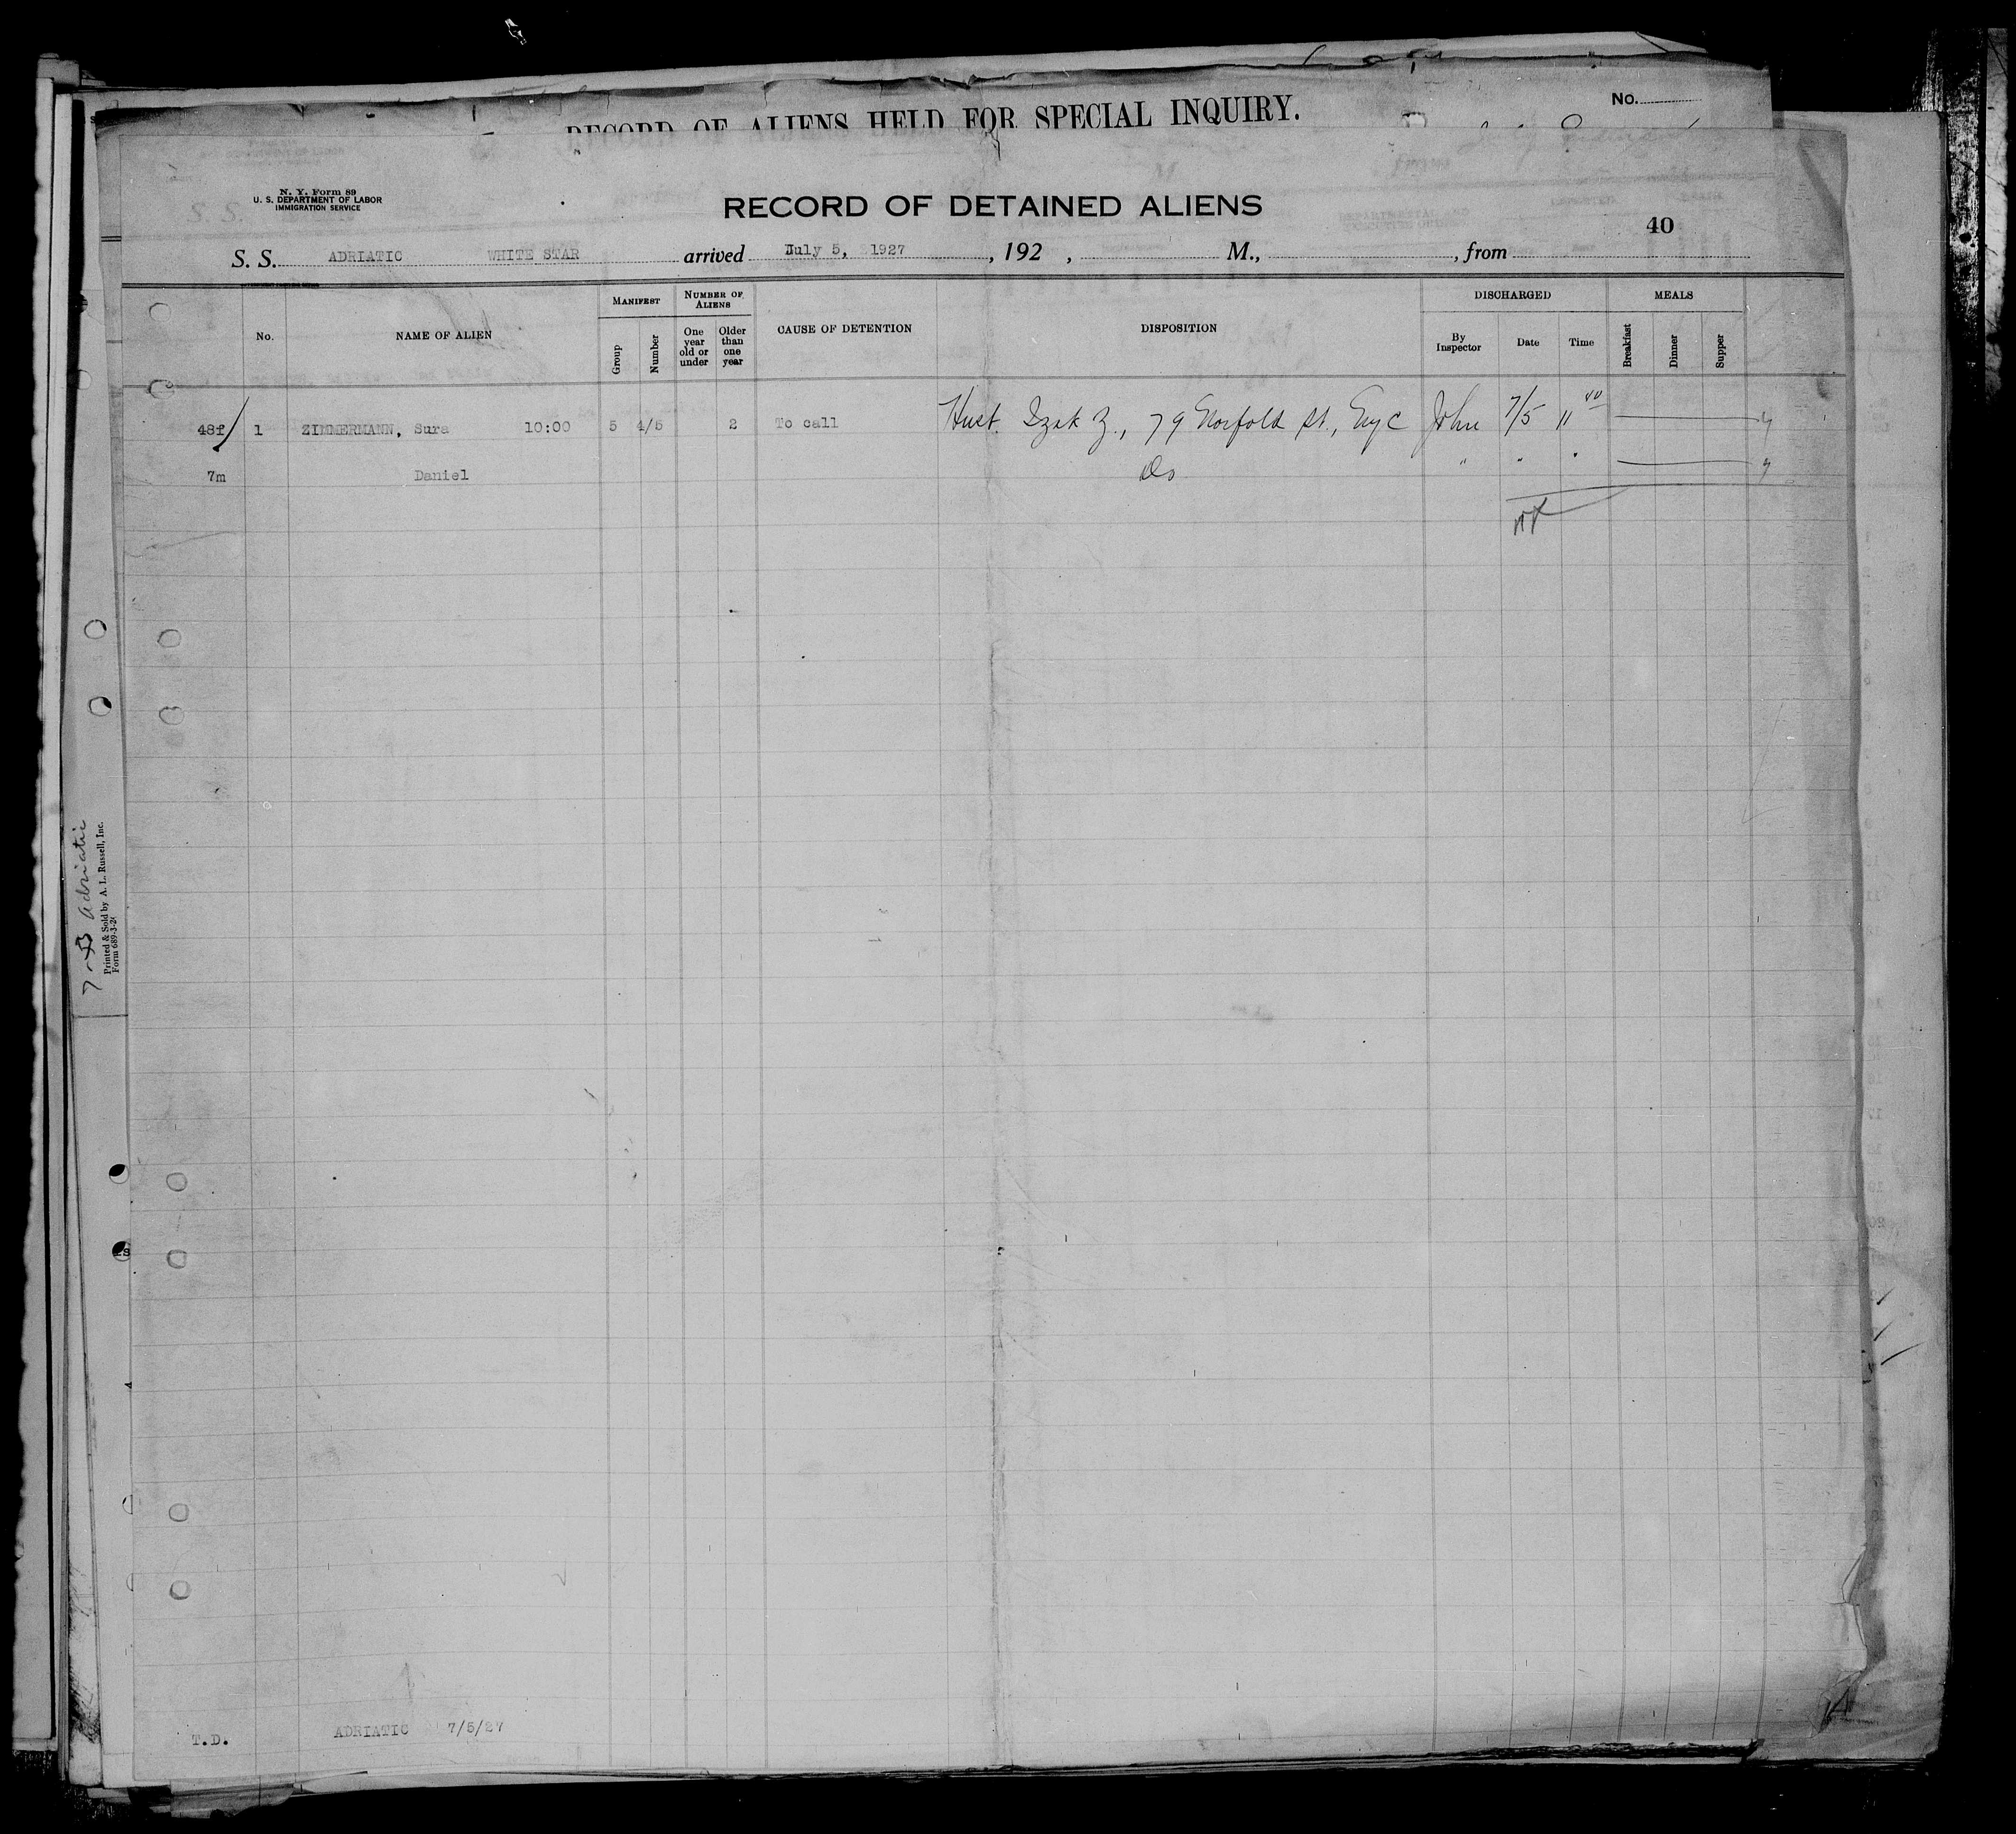 RECORD OF ALIENS HELD FOR SPECIAL INQUIRY.
No.
N. Y. Form 89
U. S. DEPARTMENT OF LABOR
IMMIGRATION SERVICE
RECORD OF DETAINED ALIENS
40
S. S. ADRIATIC WHITE STAR arrived July 5, 1927, 192 , M., , from
No. NAME OF ALIEN MANIFEST Group Number NUMBER OF ALIENS One year old or under Older than one year CAUSE OF DETENTION DISPOSITION DISCHARGED By Inspector Date Time MEALS Breakfast Dinner Supper
48f 1 ZIMMERMANN, Sura 10:00 5 4/5 2 To call Husb. Izak Z., 79 Norfold St., NyC John 7/5 11 40
7m Daniel Do " " "
7-B Adriatic
Printed & Sold by A. L. Russell, Inc.
Form 689-3-2
T.D. ADRIATIC 7/5/27